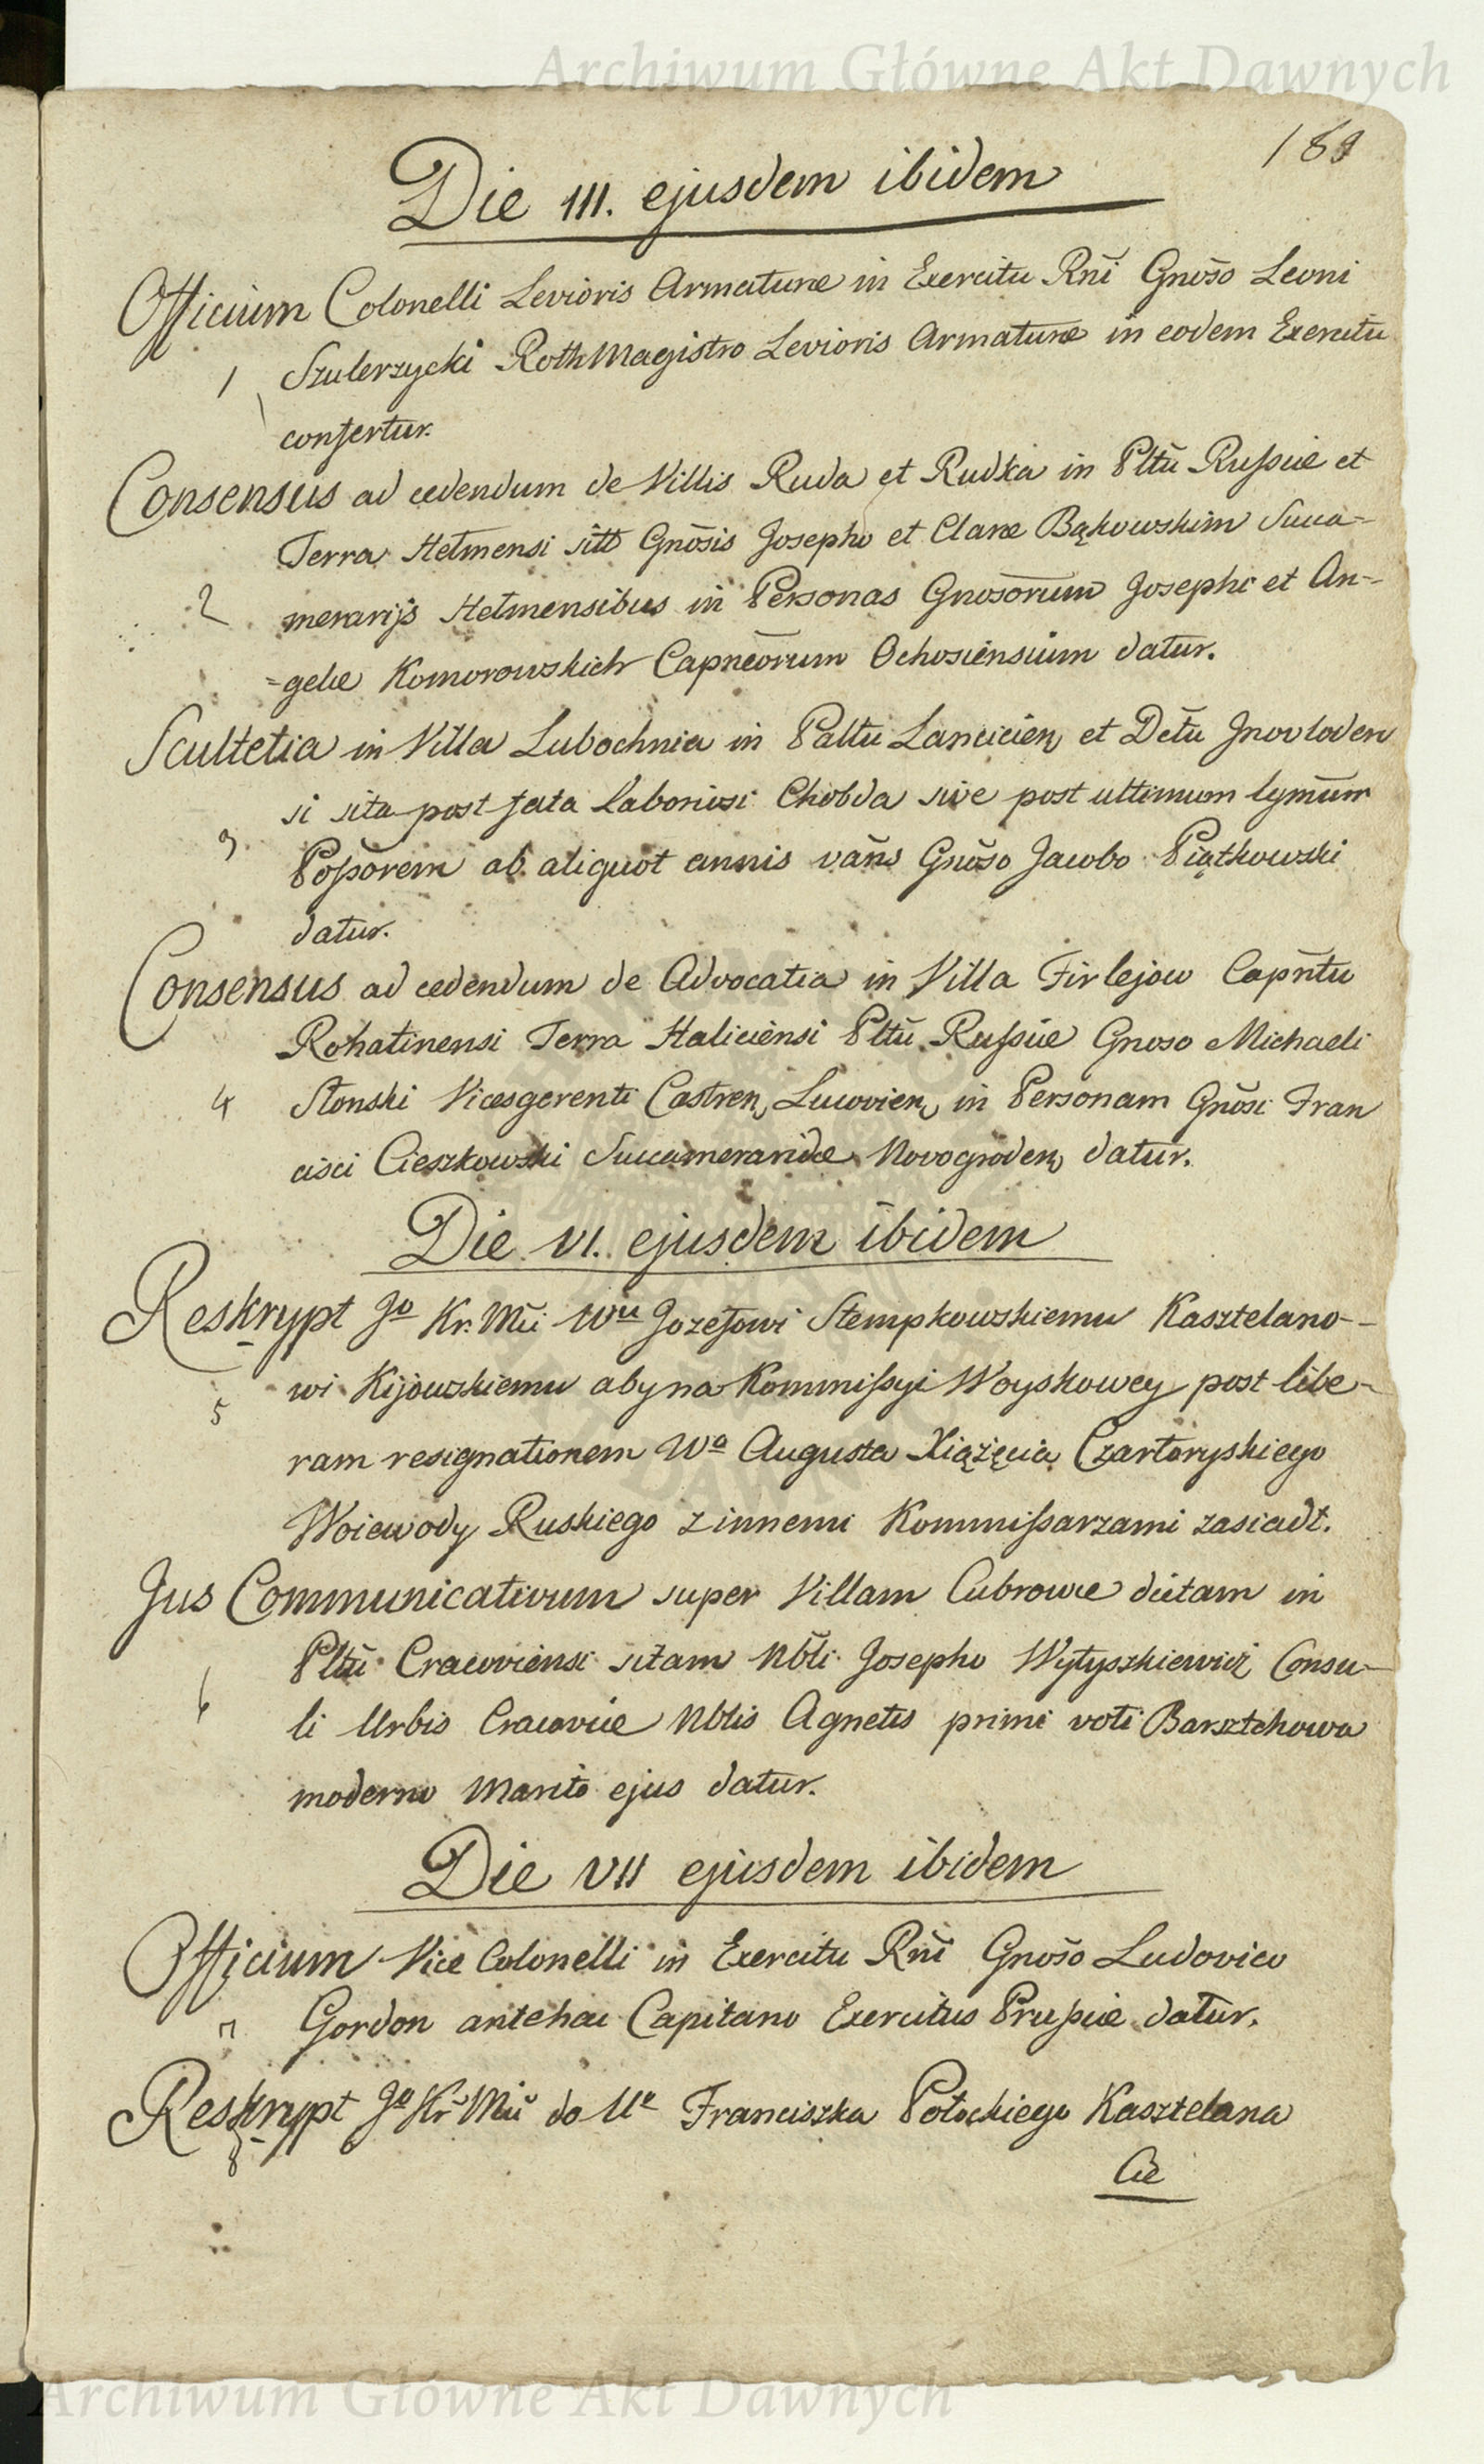 Archiwum Główne Akt Dawnych
189
Die III. ejusdem ibidem
Officium Colonelli Levioris Armaturæ in Exercitu Rni Gnoso Leoni
1 Szulerzycki RothMagistro Levioris Armaturæ in eodem Exercitu
confertur.
Consensus ad cedendum de Villis Ruda et Rudka in Pltu Russiæ et
Terra Hełmensi sitt Gnosis Josepho et Claræ Bąkowskim Succa-
2 merarijs Hełmensibus in Personas Gnosorum Josephi et An-
=gelæ Komorowskich Capneorum Ochosiensium datur.
Scultetia in Villa Lubochnia in Paltu Lancicien et Dctu Jnovloden
si sita post fata Laboriosi Chobda sive post ultimum lgmum
3 Possorem ab aliquot annis vans Gnoso Jacobo Piątkowski
datur.
Consensus ad cedendum de Advocatia in Villa Firlejow Capntu
Rohatinensi Terra Haliciensi Pltu Russiæ Gnoso Michaeli
4 Słonski Vicesgerenti Castren Leopolien in Personam Gnosi Fran
cisci Cieszkowski Succameraridæ Novogroden datur.
Die VI. ejusdem ibidem
Reskrypt Jo Kr. Mci Wu Jozefowi Stempkowskiemu Kasztelano-
5 wi Kijowskiemu aby na Kommissyi Woyskowey post libe-
ram resignationem Wo Augusta Xiążęcia Czartoryskiego
Woiewody Ruskiego z innemi Kommissarzami zasiadł.
Jus Communicativum super Villam Cubrowce dictam in
Pltu Cracoviensi sitam Nbli Josepho Wytyszkiewicz Consu-
6 li Urbis Cracoviæ Nblis Agnetis primi voti Barsztchowa
moderno Marito ejus datur.
Die VII ejusdem ibidem
Officium Vice Colonelli in Exercitu Rni Gnoso Ludovico
7 Gordon antehac Capitano Exercitus Prussiæ datur.
Reskrypt Jo Kr Mci do Ur Franciszka Potockiego Kasztelana
8
Cie
Archiwum Główne Akt Dawnych